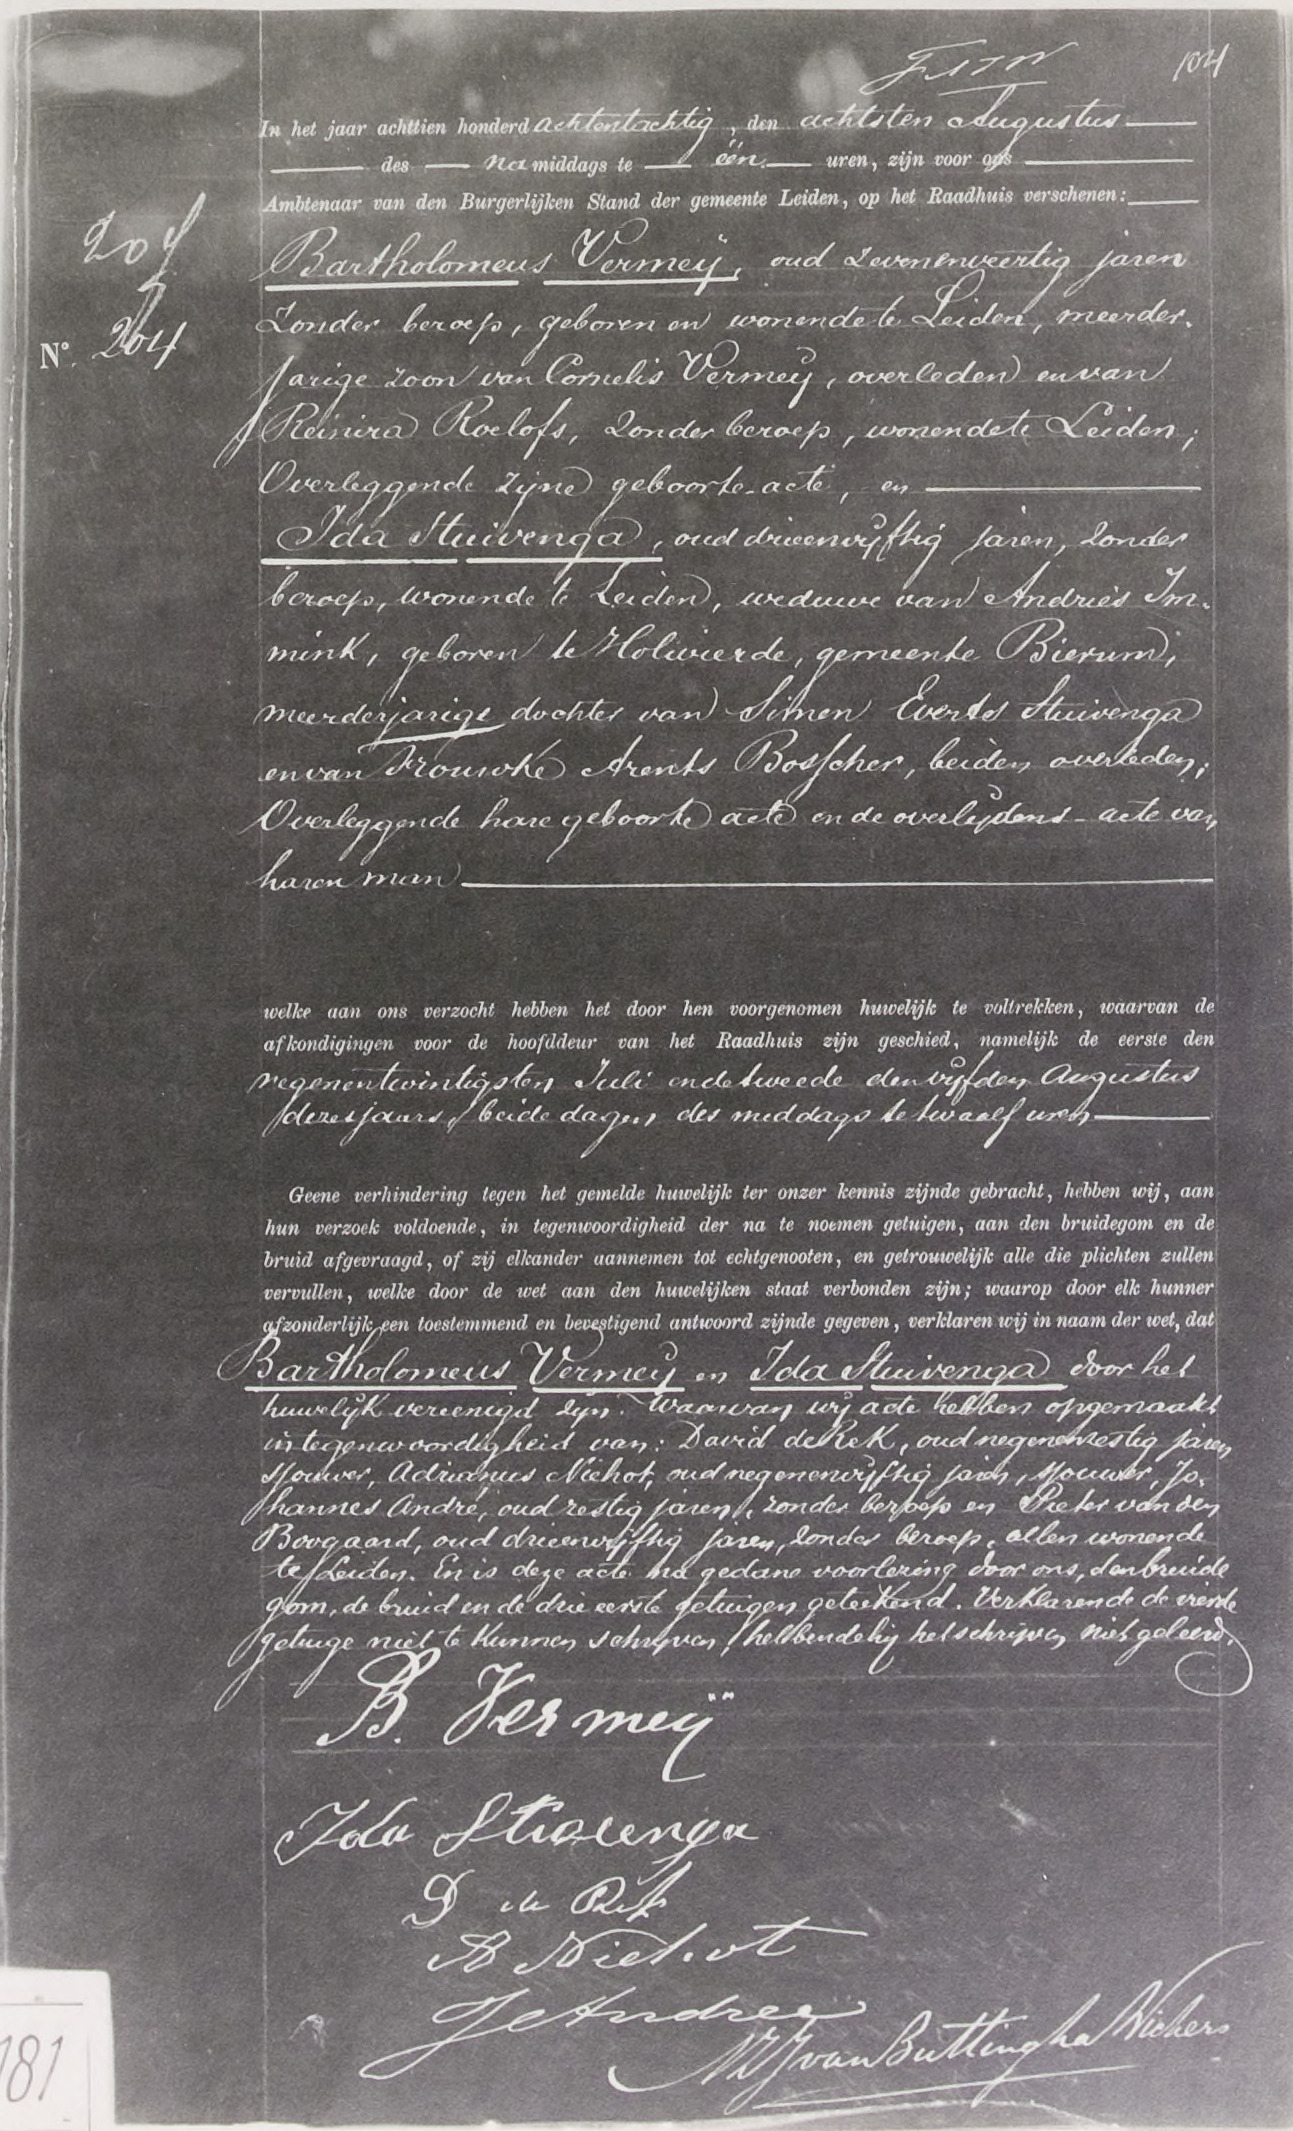 104
In het jaar achttien honderd achtentachtig, den achtsten Augustus
des na middags te één uren, zijn voor ons
Ambtenaar van den Burgerlijken Stand der gemeente Leiden, op het Raadhuis verschenen:
Bartholomeus Vermeÿ, oud zevenenveertig jaren
zonder beroep, geboren en wonende te Leiden, meerder-
No. 204
jarige zoon van Cornelis Vermeÿ, overleden en van
Reinira Roelofs, zonder beroep, wonende te Leiden;
Overleggende zijne geboorte-acte, en
Ida Stuivenga, oud drieenvijftig jaren, zonder
beroep, wonende te Leiden, weduwe van Andries Im-
mink, geboren te Holwierde, gemeente Bierum,
meerderjarige dochter van Simen Everts Stuivenga
en van Trouwke Arents Bosscher, beiden overleden;
Overleggende hare geboorte acte en de overlijdens-acte van
haren man
welke aan ons verzocht hebben het door hen voorgenomen huwelijk te voltrekken, waarvan de
afkondigingen voor de hoofddeur van het Raadhuis zijn geschied, namelijk de eerste den
negenentwintigsten Juli en de tweede den vijfden Augustus
dezes jaars, beide dagen des middags te twaalf uren
Geene verhindering tegen het gemelde huwelijk ter onzer kennis zijnde gebracht, hebben wij, aan
hun verzoek voldoende, in tegenwoordigheid der na te noemen getuigen, aan den bruidegom en de
bruid afgevraagd, of zij elkander aannemen tot echtgenooten, en getrouwelijk alle die plichten zullen
vervullen, welke door de wet aan den huwelijken staat verbonden zijn; waarop door elk hunner
afzonderlijk een toestemmend en bevestigend antwoord zijnde gegeven, verklaren wij in naam der wet, dat
Bartholomeus Vermeÿ en Ida Stuivenga door het
huwelijk vereenigd zijn. Waarvan wij acte hebben opgemaakt
in tegenwoordigheid van: David de Rek, oud negenenzestig jaren
sjouwer, Adrianus Niehot, oud negenenvijftig jaren, sjouwer, Jo-
hannes André, oud zestig jaren, zonder beroep en Pieter van den
Boogaard, oud drieenvijftig jaren, zonder beroep, allen wonende
te Leiden. En is deze acte na gedane voorlezing door ons, den bruide
gom, de bruid en de drie eerste getuigen geteekend. Verklarende de vierde
getuige niet te kunnen schrijven, hebbende hij het schrijven niet geleerd.
B. Vermeÿ
Ida Stuivenga
D de Rek
A Niehot
J Andree
van Buttingha Wichers
181